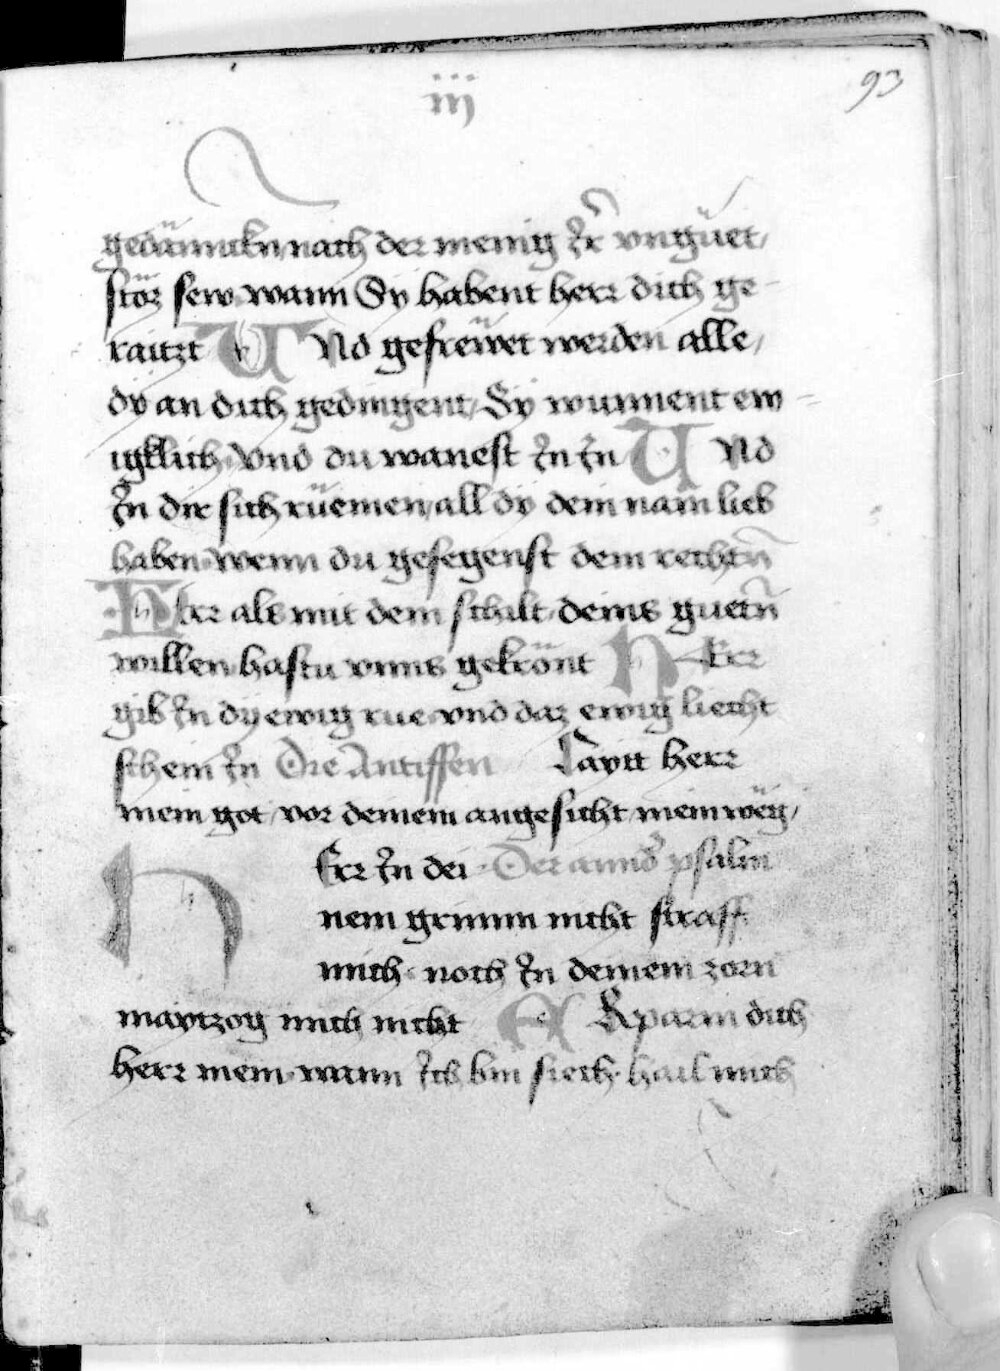 iij
93
gedänncken nach der menig Ir vngüet,
stöz sew. wann Sÿ habent herr dich ge-
raitzt VNd gefrëwet werden alle,
dÿ an dich gedingent, Sÿ wunnent ew-
igklich. Vnd du wanest In In VNd
In dir sich rüemen, all dÿ dein nam lieb
haben. wenn du gesegenst dem rechtn̄
HErr als mit dem schilt deins guetn̄
willen hastu vnns gekrönt HErr
gib In dÿ ewig rue vnd daz ewig liecht
schein In Die Antiffen Laytt herr
mein got vor deinem angesicht mein wëg,
HErr In dei- Der annd' psalm
nem grimm nicht straff
mich. noch In deinem zorn
maytzog mich nicht ERparm dich
herr mein. wann Ich bin siech. hail mich